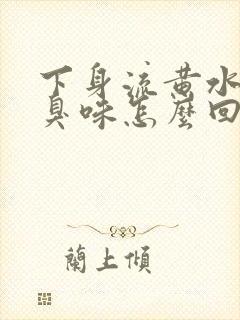 下身流黄水
臭味怎麼回
蘭上傾